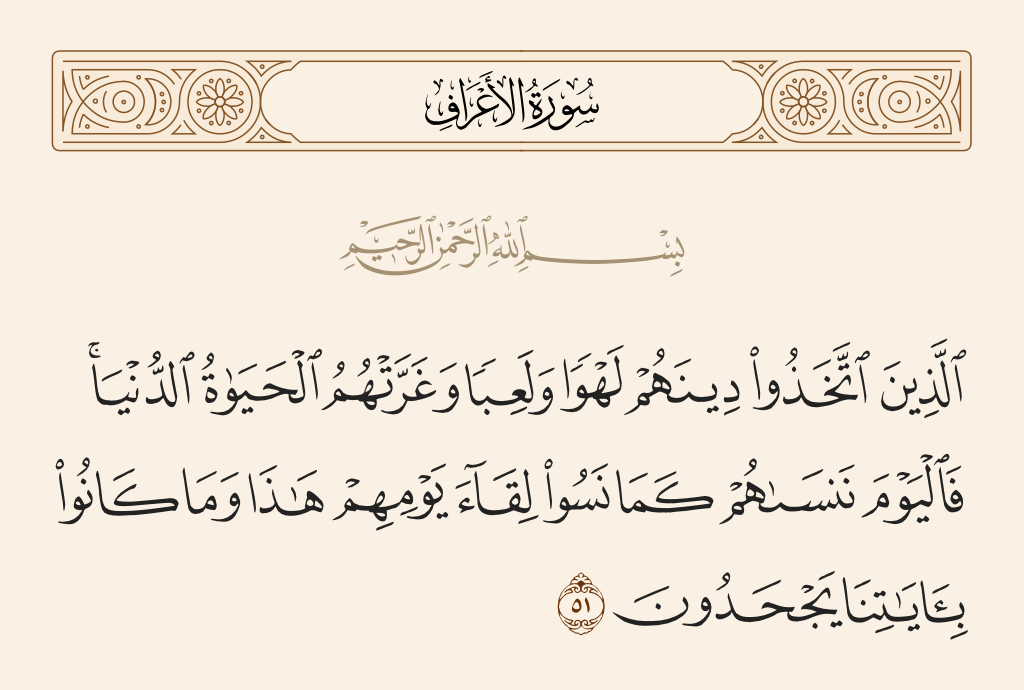 سُورَةُ الأَعْرَافِ
بِسْمِ ٱللَّهِ ٱلرَّحْمَٰنِ ٱلرَّحِيمِ
ٱلَّذِينَ ٱتَّخَذُوا۟ دِينَهُمْ لَهْوًا وَلَعِبًا وَغَرَّتْهُمُ ٱلْحَيَوٰةُ ٱلدُّنْيَا ۚ
فَٱلْيَوْمَ نَنسَىٰهُمْ كَمَا نَسُوا۟ لِقَآءَ يَوْمِهِمْ هَٰذَا وَمَا كَانُوا۟
بِـَٔايَٰتِنَا يَجْحَدُونَ ٥١